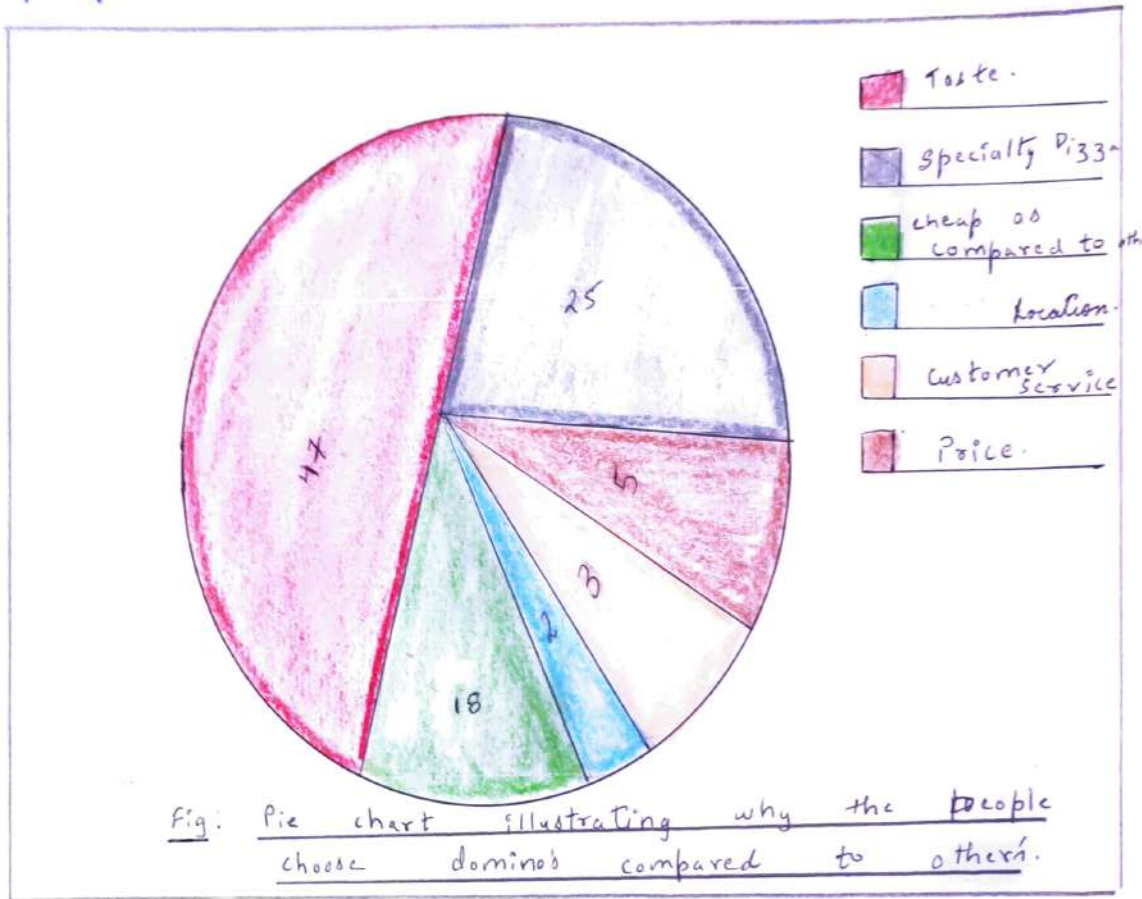 Taste.
Specialty Pizza
cheap as
compared to oth
Location.
Customer
service
Price.
25
47
5
3
2
18
Fig: Pie chart illustrating why the people
choose domino's compared to others.